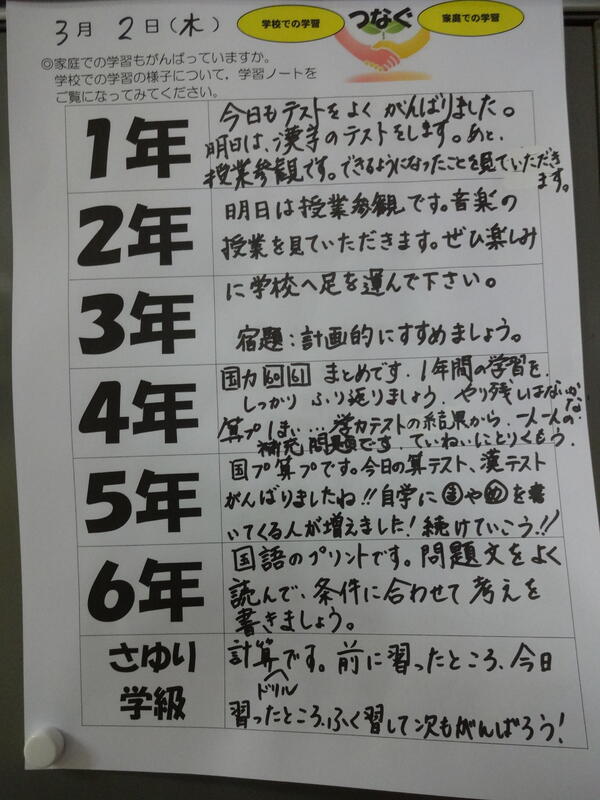 3月 2日(木)
学校での学習 つなぐ 家庭での学習
◎家庭での学習もがんばっていますか。
学校での学習の様子について，学習ノートを
ご覧になってみてください。
1年
今日もテストをよくがんばりました。
明日は、漢字のテストをします。あと、
授業参観です。できるようになったことを見ていただき
ます。
2年
明日は授業参観です。音楽の
授業を見ていただきます。ぜひ楽しみ
3年
に学校へ足を運んで下さい。
宿題：計画的にすすめましょう。
4年
国力 60 61 まとめです．1年間の学習を、
しっかり ふり返りましょう． やり残しはないかな
算プ1まい…学力テストの結果から、一人一人の
補充問題です ていねいにとりくもう．
5年
国プ算プです。今日の算テスト、漢テスト
がんばりましたね!!自学に ま や め を書
いてくる人が増えました！続けていこう!!
6年
国語のプリントです。問題文をよく
読んで、条件に合わせて考えを
書きましょう。
さゆり
学級
計算ドリルです。前に習ったところ、今日
習ったところ、ふく習して次もがんばろう！